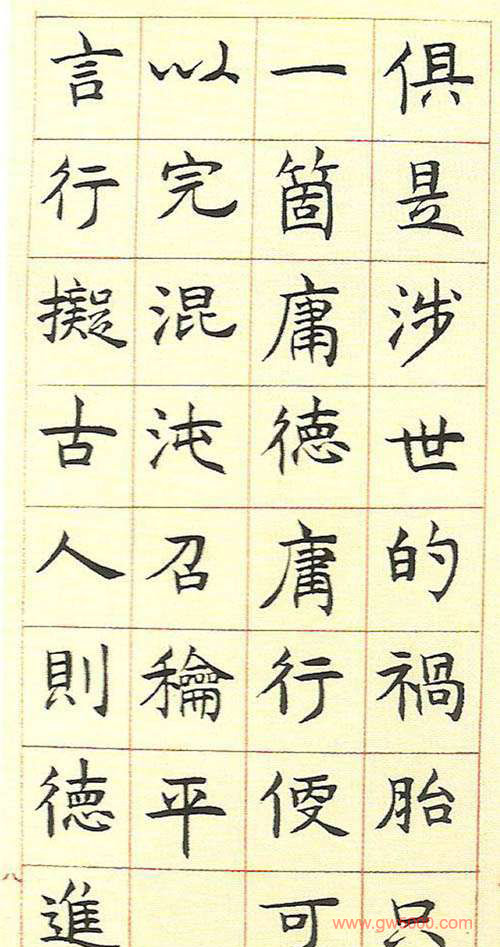 俱是涉世的禍胎只
一箇庸德庸行便可
以完混沌召龢平
言行擬古人則德進
八